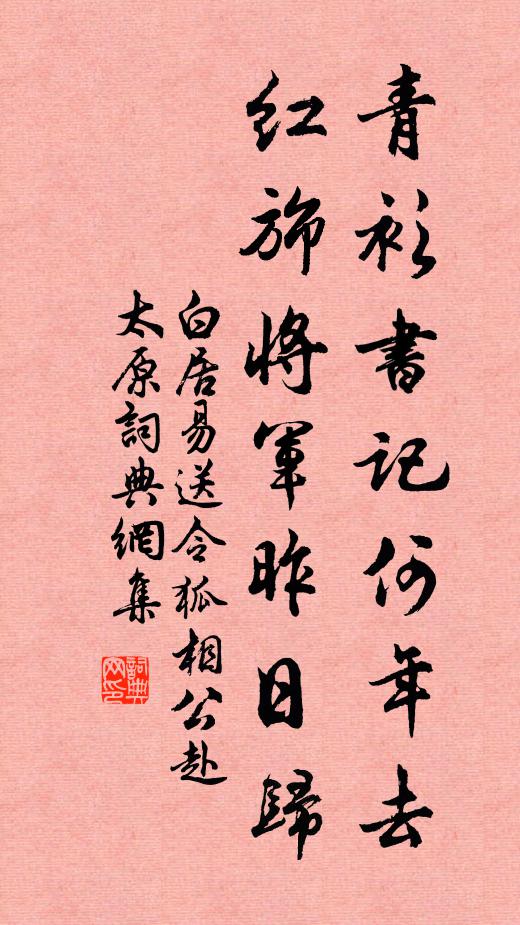 青衫書記何年去
紅旆將軍昨日歸
白居易送令狐相公赴
太原詞典網集
詞典
网印